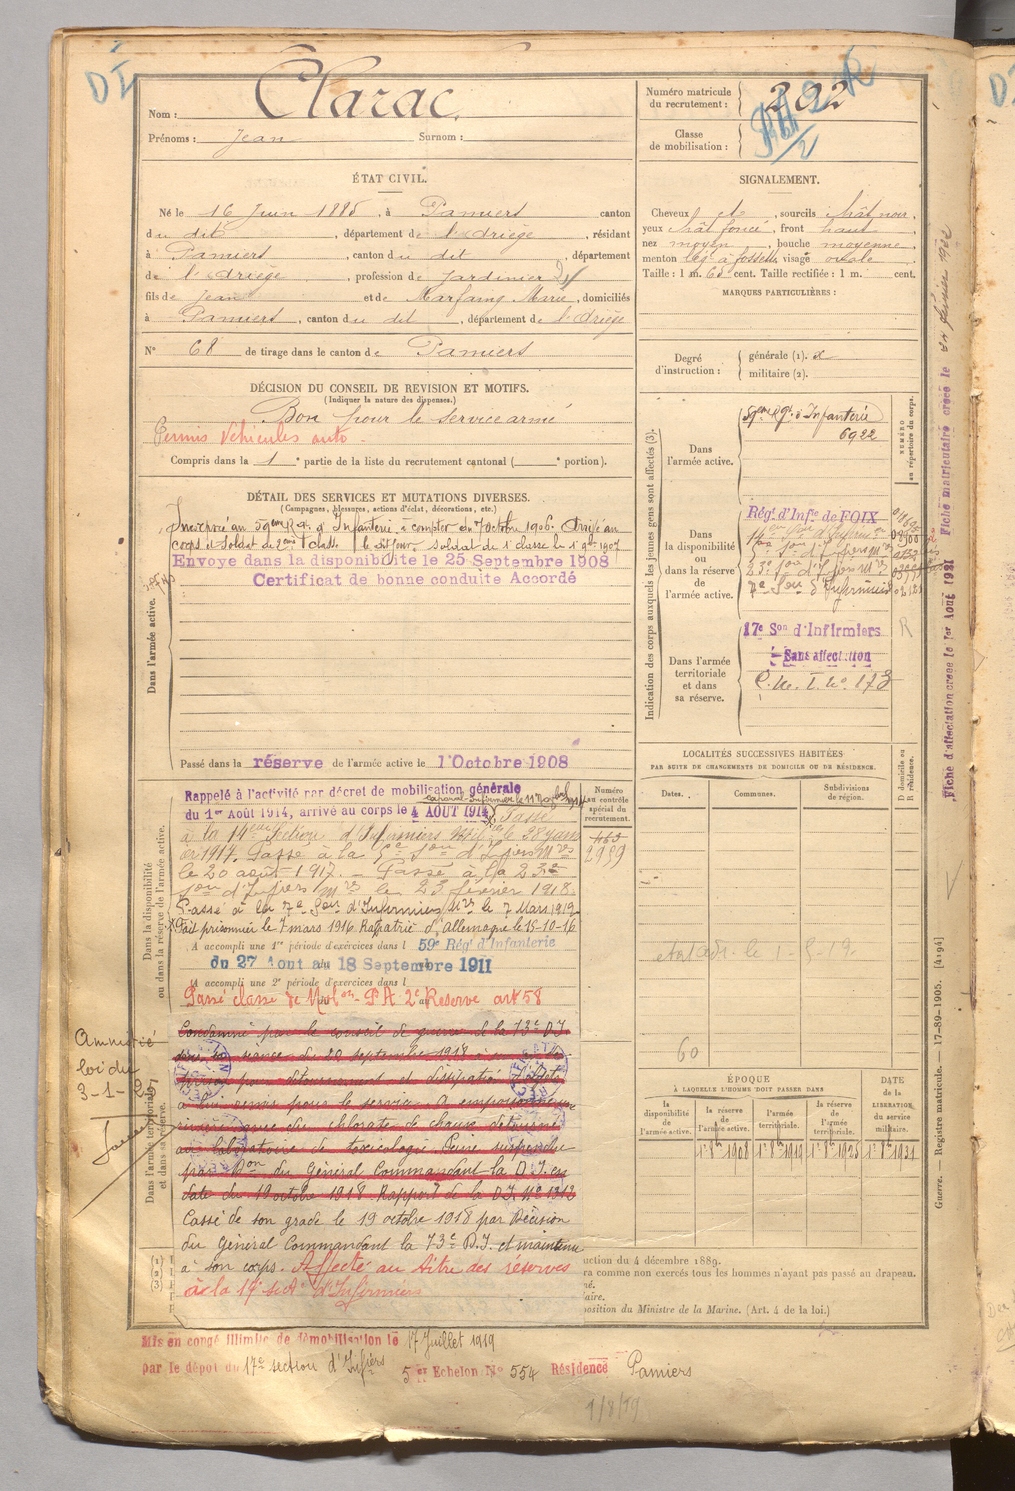 DI
Nom : Clarac.
Prénoms : Jean Surnom :
ÉTAT CIVIL.
Né le 16 Juin 1885, à Pamiers canton
du dit, département de l'Ariège, résidant
à Pamiers, canton du dit, département
de l'Ariège, profession de jardinier
fils de Jean et de Marfaing Marie, domiciliés
à Pamiers, canton du dit, département de l'Ariège
N° 68 de tirage dans le canton de Pamiers
DÉCISION DU CONSEIL DE REVISION ET MOTIFS.
(Indiquer la nature des dispenses.)
Bon pour le service armé
Permis Véhicules auto
Compris dans la 1e partie de la liste du recrutement cantonal ( e portion).
DÉTAIL DES SERVICES ET MUTATIONS DIVERSES.
(Campagnes, blessures, actions d'éclat, décorations, etc.)
Dans l'armée active.
Incorporé au 59eme Rgt d'Infanterie à compter du 7 octobre 1906. Arrivé au
corps et soldat de 2eme classe le dit jour. soldat de 1e classe le 1e 9bre 1907
Envoyé dans la disponibilité le 25 Septembre 1908
Certificat de bonne conduite Accordé
Passé dans la réserve de l'armée active le 1 Octobre 1908
Dans la disponibilité
ou dans la réserve de l'armée active.
Rappelé à l'activité par décret de mobilisation générale
du 1er Août 1914, arrivé au corps le 4 AOUT 1914. Passé
à la 14eme Section d'Infirmiers le 28
1917. Passé à la 5e Son d'Infiers Mres
le 20 août 1917. — Passé à la 23e
Son d'Infiers Mres le 23 février 1918.
Passé à la 7e Son d'Infirmiers Mres le 7 Mars 1919
Fait prisonnier le 7 mars 1916 Rapatrié d'Allemagne le 15-10-16
A accompli une 1re période d'exercices dans l 59e Rég' d'Infanterie
du 27 Aout au 18 Septembre 1911
A accompli une 2e période d'exercices dans l
Passé classe de Mobon P A 2e Reserve art 58
Amnistié
loi du
3-1-25
Dans l'armée territoriale
et dans sa réserve.
Condamné par le conseil de guerre de la 73e DI
dans sa séance du 20 septembre 1918 à
prison pour détournement et dissipation d'objets
à lui remis pour le service. A
chlorate de chaux détourné
au laboratoire de toxicologie Peine suspendue
par Don du Général Commandant la D.I. en
date du 19 octobre 1918 Rapport de la DI N° 1312
Cassé de son grade le 19 octobre 1918 par Décision
du Général Commandant la 73e D.I. et maintenu
à son corps. Affecté au titre des réserves
à la 19e sect d'Infirmiers
Mis en congé illimité de démobilisation le 17 Juillet 1919
par le dépôt du 17e section d'Infiers 5 er Echelon N° 554 Résidence Pamiers
1/8/19
Numéro matricule
du recrutement : 202
Classe
de mobilisation :
SIGNALEMENT.
Cheveux et, sourcils chât noir,
yeux chât foncé, front haut
nez moyen, bouche moyenne
menton lég à fossette visage ovale
Taille : 1 m. 65 cent. Taille rectifiée : 1 m. cent.
MARQUES PARTICULIÈRES :
Degré
d'instruction :
générale (1). 2
militaire (2).
Indication des corps auxquels les jeunes gens sont affectés (3).
NUMÉRO
au répertoire du corps.
Dans
l'armée active.
59eme Rgt d'Infanterie
6922
Dans
la disponibilité
ou dans la réserve
de
l'armée active.
Rég' d'Infie de FOIX
5e Son d'Infiers Mres
23e Son d'Infiers Mres
7e Son d'Infirmiers
Dans l'armée
territoriale
et dans
sa réserve.
17e Son d'Infirmiers
Sans affectation
R
LOCALITÉS SUCCESSIVES HABITÉES
PAR SUITE DE CHANGEMENTS DE DOMICILE OU DE RÉSIDENCE.
Dates.
Communes.
Subdivisions
de région.
D domicile ou
R résidence.
Numéro
au contrôle
spécial du
recrutement.
2959
60
ÉPOQUE
À LAQUELLE L'HOMME DOIT PASSER DANS
la
disponibilité
de
l'armée active.
la réserve
de
l'armée active.
l'armée
territoriale.
la réserve
de
l'armée
territoriale.
DATE
de la
LIBÉRATION
du service
militaire.
1er 8bre 1908
1er 8bre 1919
1er 8bre 1925
1er 8bre 1931
uction du 4 décembre 1889.
ra comme non exercés tous les hommes n'ayant pas passé au drapeau.
position du Ministre de la Marine. (Art. 4 de la loi.)
Guerre. — Registre matricule. — 17-89-1905. [4194]
Fiche d'affectation créée le 1er Août 1921
Fiche matriculaire créée le